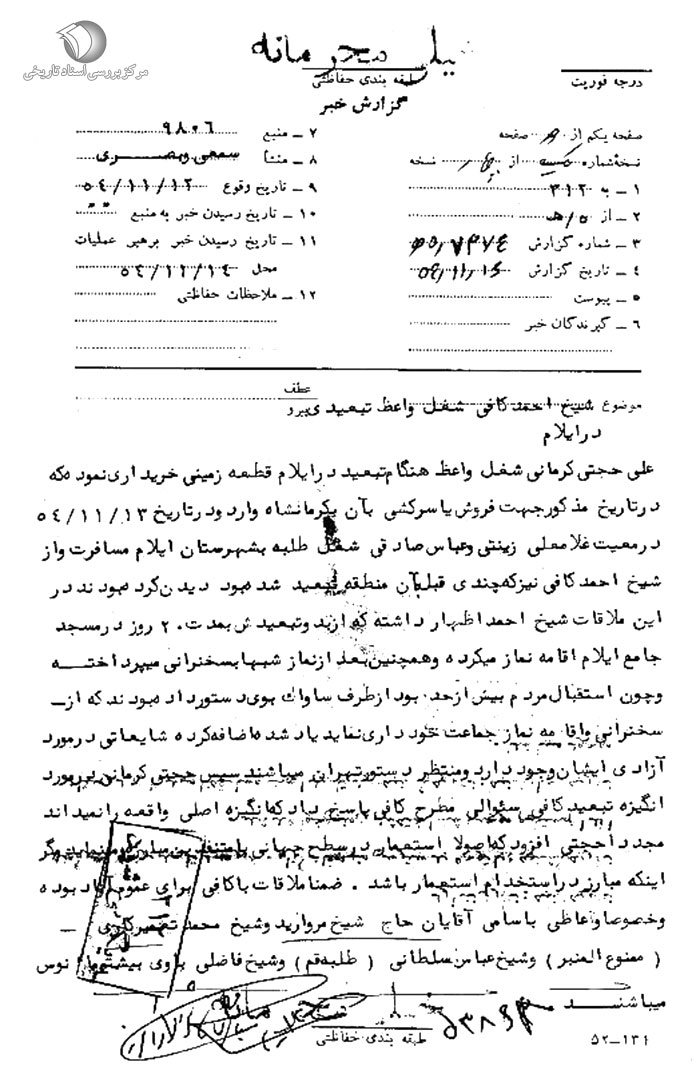 مرکز بررسی اسناد تاریخی
خیلی محرمانه
طبقه بندی حفاظتی
گزارش خبر
درجه فوریت
صفحه یکم از صفحه
نسخهٔ شماره از نسخه
۱ ـ به ۳۱۲
۲ ـ از ۵/هـ
۳ ـ شماره گزارش
۴ ـ تاریخ گزارش
۵ ـ پیوست
۶ ـ گیرندگان خبر
۷ ـ منبع ۹۸۰۶
۸ ـ منشأ سمعی و بصری
۹ ـ تاریخ وقوع ۵۴/۱۱/۱۲
۱۰ ـ تاریخ رسیدن خبر به منبع
۱۱ ـ تاریخ رسیدن خبر برهبر عملیات
محل ۵۴/۱۱/۱۴
۱۲ ـ ملاحظات حفاظتی
موضوع شیخ احمد کافی شغل واعظ تبعیدی
عطف
پیرو
در ایلام
علی حجتی کرمانی شغل واعظ هنگام تبعید در ایلام قطعه زمینی خریداری نموده که
در تاریخ مذکور جهت فروش یا سرکشی بآن بکرمانشاه وارد و در تاریخ ۵۴/۱۱/۱۳
در معیت غلامعلی زینتی و عباس صادقی شغل طلبه بشهرستان ایلام مسافرت و از
شیخ احمد کافی نیز که چندی قبل بآن منطقه تبعید شده بود دیدن کرده بودند در
این ملاقات شیخ احمد اظهار داشته که از بدو تبعیدش بمدت ۲۰ روز در مسجد
جامع ایلام اقامه نماز میکرده و همچنین بعد از نماز شبها بسخنرانی میپرداختـه
و چون استقبال مردم بیش از حد بود از طرف ساواک بوی دستور داده بودند که از ـ
سخنرانی و اقامه نماز جماعت خودداری نماید یاد شده اضافه کرده شایعاتی در مورد
آزادی ایشان وجود دارد و منتظر دستور تهران میباشند سپس حجتی کرمانی در مورد
انگیزه تبعید کافی سئوالی مطرح کافی پاسخ داد که انگیزه اصلی واقعه را نمیداند
مجدداً حجتی افزود که اصولا استعمار در سطح جهانی با متنفذین مبارزه مینماید مگر
اینکه مبارز در استخدام استعمار باشد . ضمنا ملاقات با کافی برای عموم آزاد بوده
و خصوصا وعاظی باسامی آقایان حاج شیخ مروارید و شیخ محمد ـ
( ممنوع المنبر ) و شیخ عباس سلطانی ( طلبه قم ) و شیخ فاضلی با وی بیشتر مانوس
میباشنـد
خیلی محرمانه
طبقه بندی حفاظتی
۱۳۱ـ۵۲